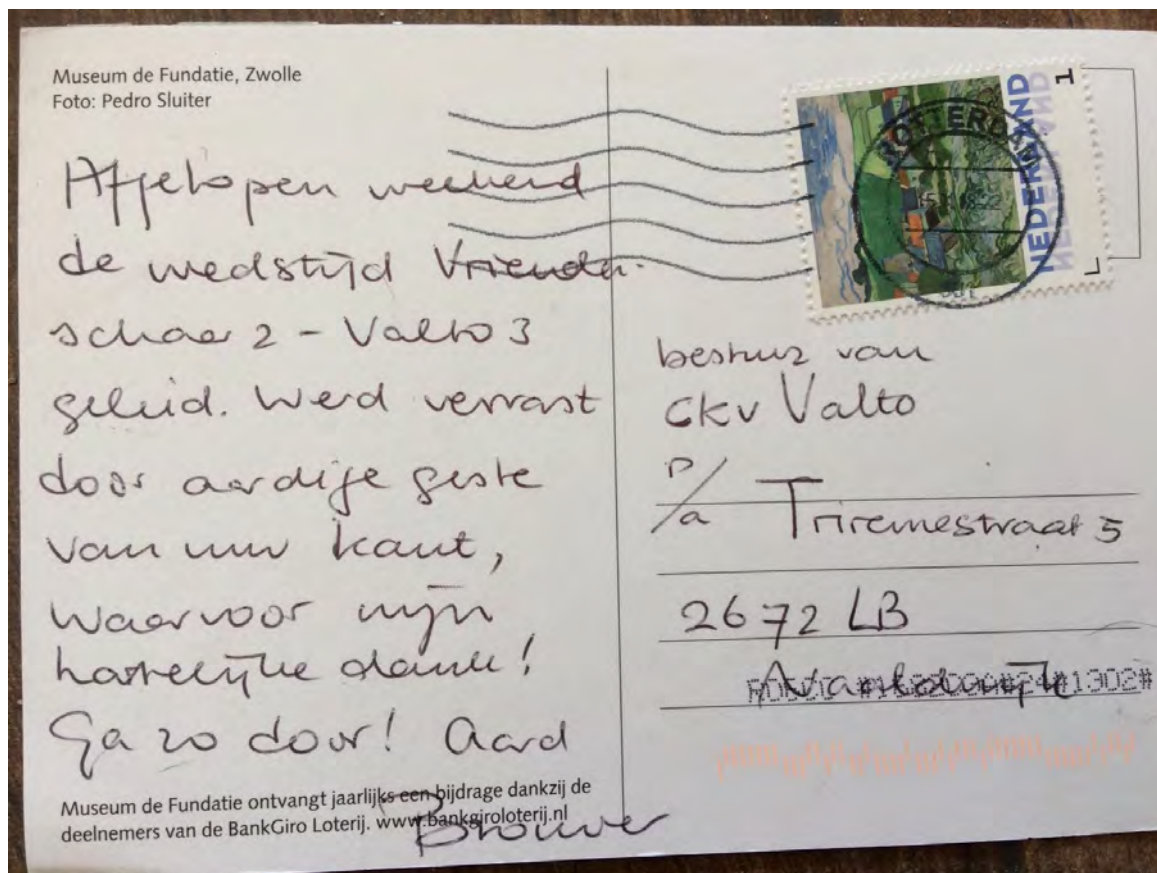 Museum de Fundatie, Zwolle
Foto: Pedro Sluiter
Afgelopen weekend
de wedstrijd Vrienden-
schaar 2 - Valto 3
geleid. Werd verrast
door aardige geste
van uw kant,
waarvoor mijn
hartelijke dank!
Ga zo door! Aard
Brouwer
Museum de Fundatie ontvangt jaarlijks een bijdrage dankzij de
deelnemers van de BankGiro Loterij. www.bankgiroloterij.nl
NEDERLAND
1
ROTTERDAM
bestuur van
ckv Valto
p/a Triremestraat 5
2672 LB
Naaldwijk
#1302#